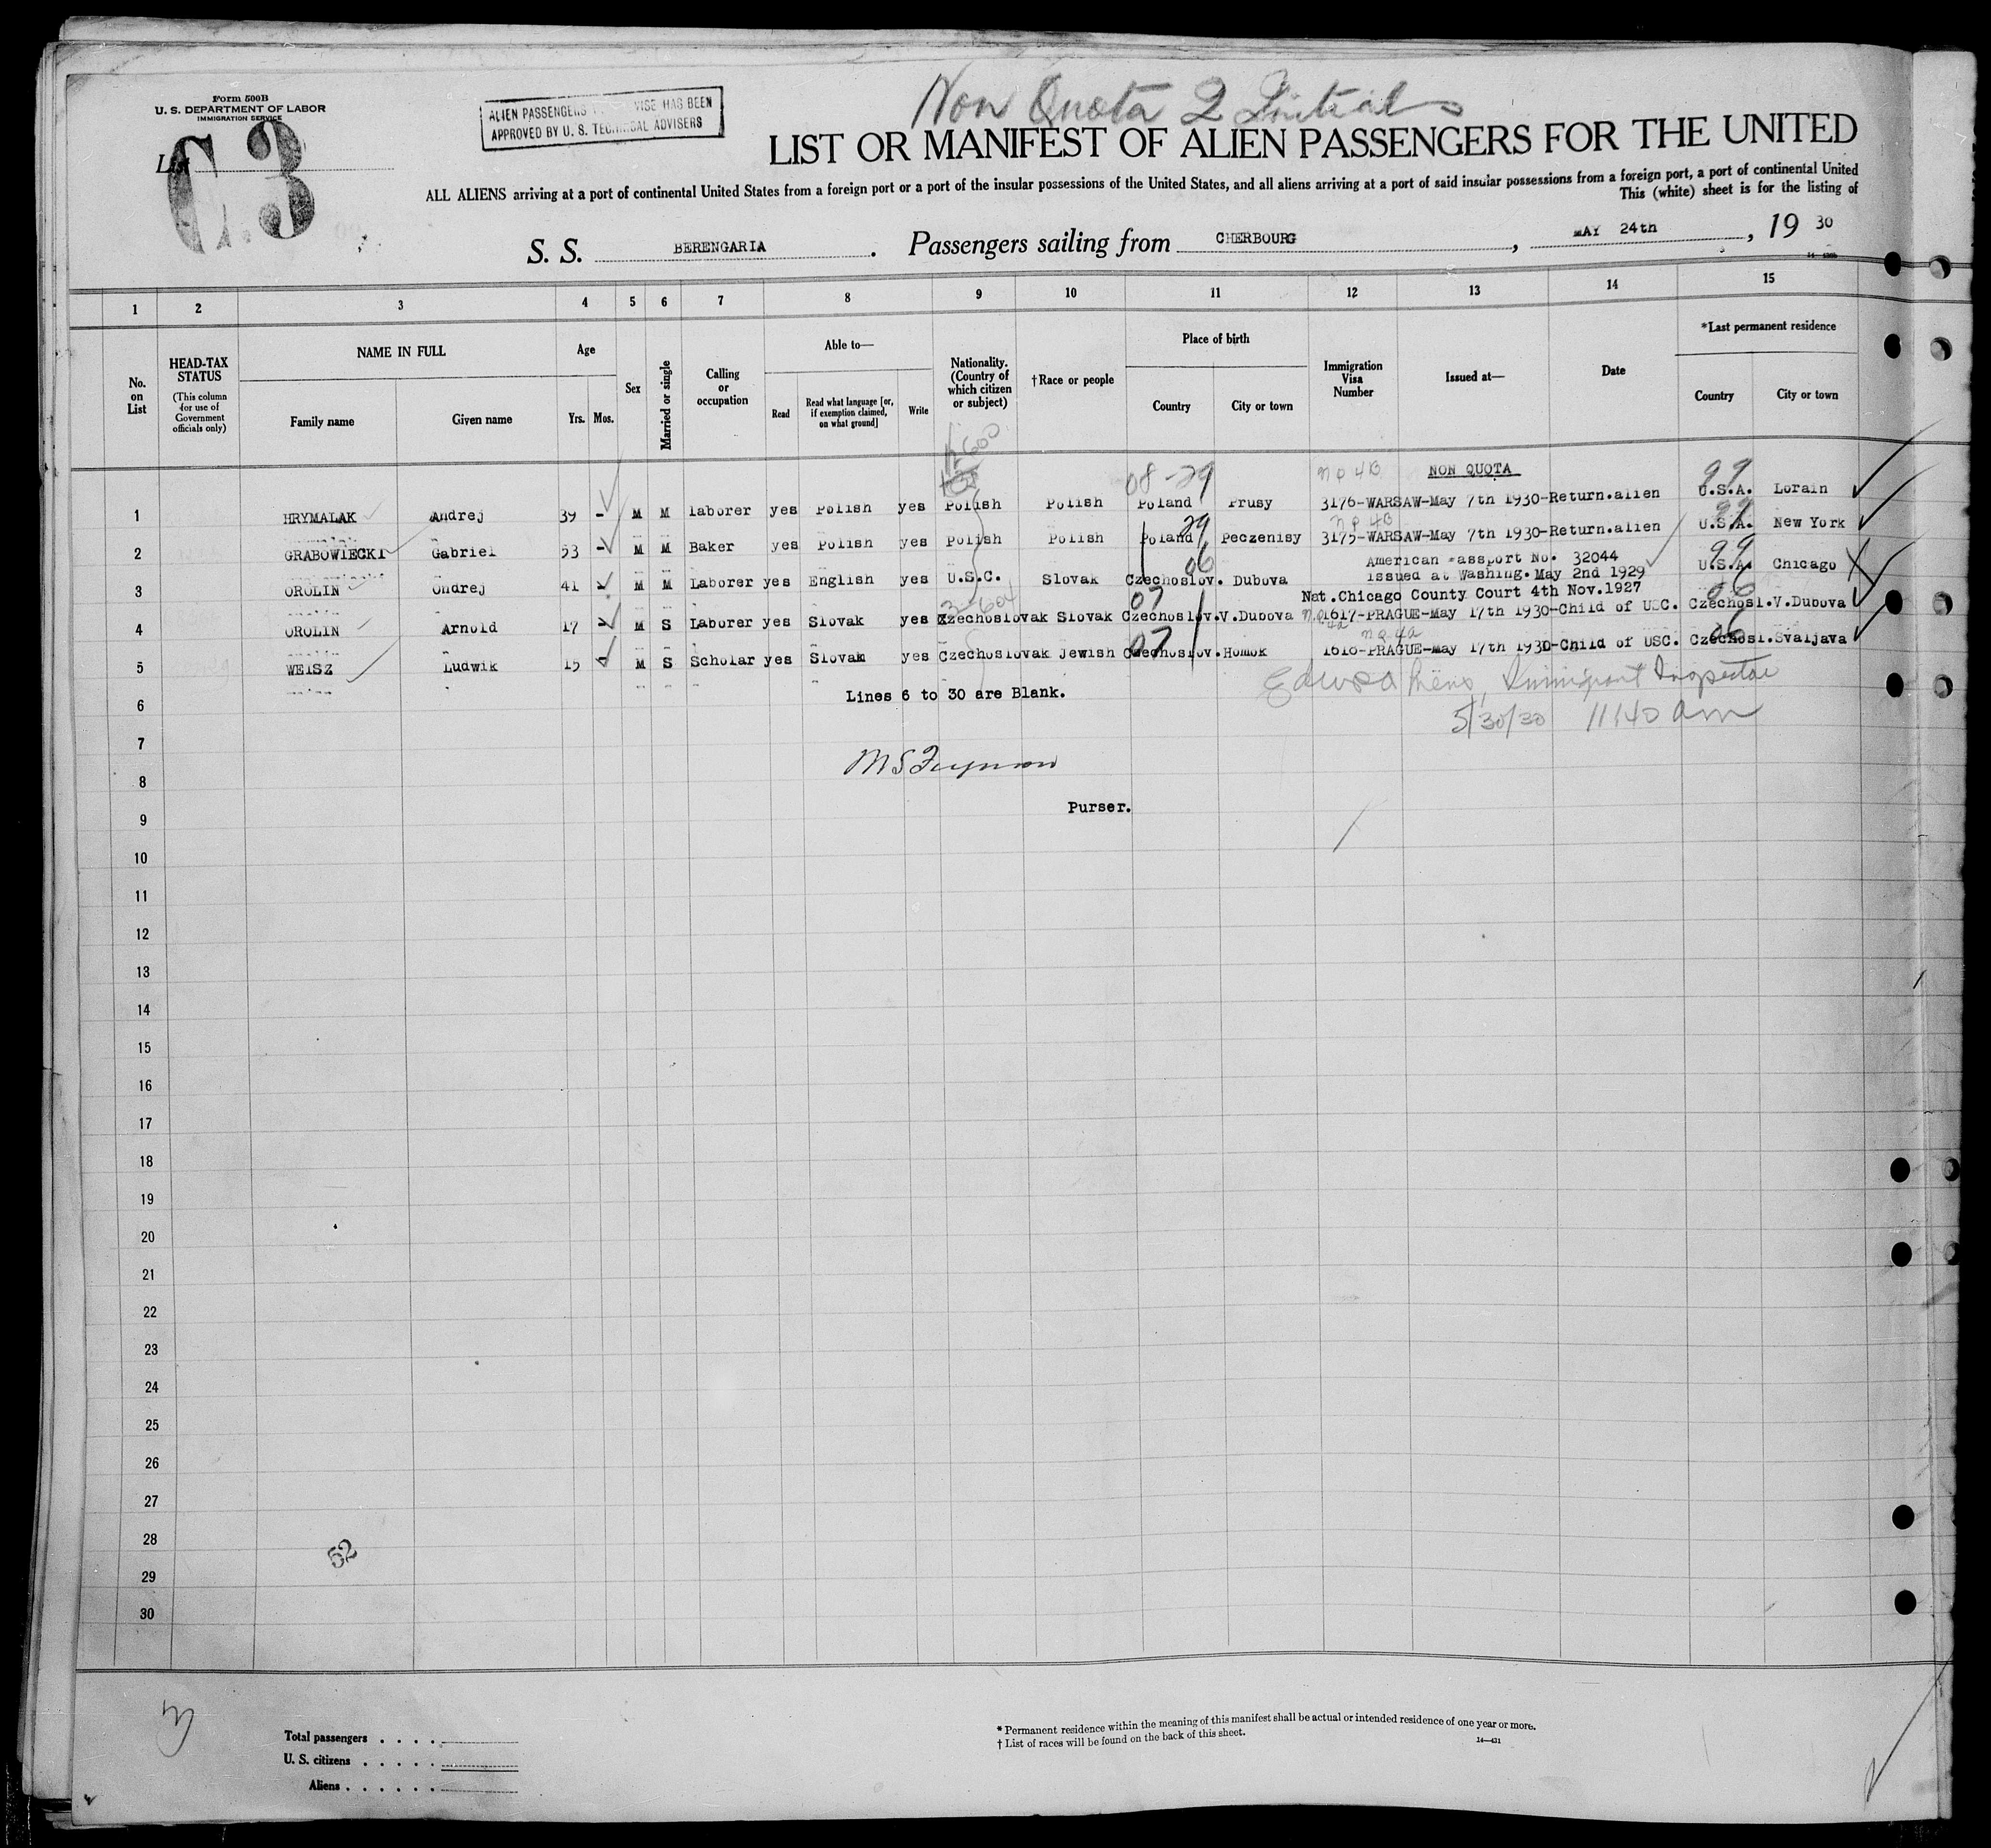 Form 500B
U. S. DEPARTMENT OF LABOR
IMMIGRATION SERVICE
List
C 3
ALIEN PASSENGERS VISE HAS BEEN
APPROVED BY U. S. TECHNICAL ADVISERS
Non Quota 2 Initial
LIST OR MANIFEST OF ALIEN PASSENGERS FOR THE UNITED
ALL ALIENS arriving at a port of continental United States from a foreign port or a port of the insular possessions of the United States, and all aliens arriving at a port of said insular possessions from a foreign port, a port of continental United
This (white) sheet is for the listing of
S. S. BERENGARIA. Passengers sailing from CHERBOURG, MAY 24th, 19 30
1 2 3 4 5 6 7 8 9 10 11 12 13 14 15
No. on List
HEAD-TAX STATUS (This column for use of Government officials only)
NAME IN FULL
Family name Given name
Age
Yrs. Mos.
Sex
Married or single
Calling or occupation
Able to—
Read Read what language [or, if exemption claimed, on what ground] Write
Nationality. (Country of which citizen or subject)
†Race or people
Place of birth
Country City or town
Immigration Visa Number
Issued at—
Date
*Last permanent residence
Country City or town
08-29 NON QUOTA 99
1 HRYMALAK Andrej 39 - M M laborer yes Polish yes Polish Polish Poland Prusy 3176-WARSAW-May 7th 1930-Return.alien U.S.A. Lorain
2 GRABOWIECKI Gabriel 53 - M M Baker yes Polish yes Polish Polish Poland Peczenisy 3175-WARSAW-May 7th 1930-Return.alien U.S.A. New York
American Passport No. 32044
3 OROLIN Ondrej 41 M M Laborer yes English yes U.S.C. Slovak Czechoslov. Dubova issued at Washing. May 2nd 1929 U.S.A. Chicago
Nat.Chicago County Court 4th Nov.1927
4 OROLIN Arnold 17 M S Laborer yes Slovak yes Czechoslovak Slovak Czechoslov. V.Dubova 1617-PRAGUE-May 17th 1930-Child of USC. Czechosl. V.Dubova
5 WEISZ Ludwik 15 M S Scholar yes Slovak yes Czechoslovak Jewish Czechoslov. Homok 1618-PRAGUE-May 17th 1930-Child of USC. Czechosl. Svaljava
Lines 6 to 30 are Blank.
Immigrant Inspector
5/30/30 11:40 am
6
7
8
Purser.
9
10
11
12
13
14
15
16
17
18
19
20
21
22
23
24
25
26
27
28
52
29
30
3
Total passengers
U. S. citizens
Aliens
* Permanent residence within the meaning of this manifest shall be actual or intended residence of one year or more.
† List of races will be found on the back of this sheet.
14—431